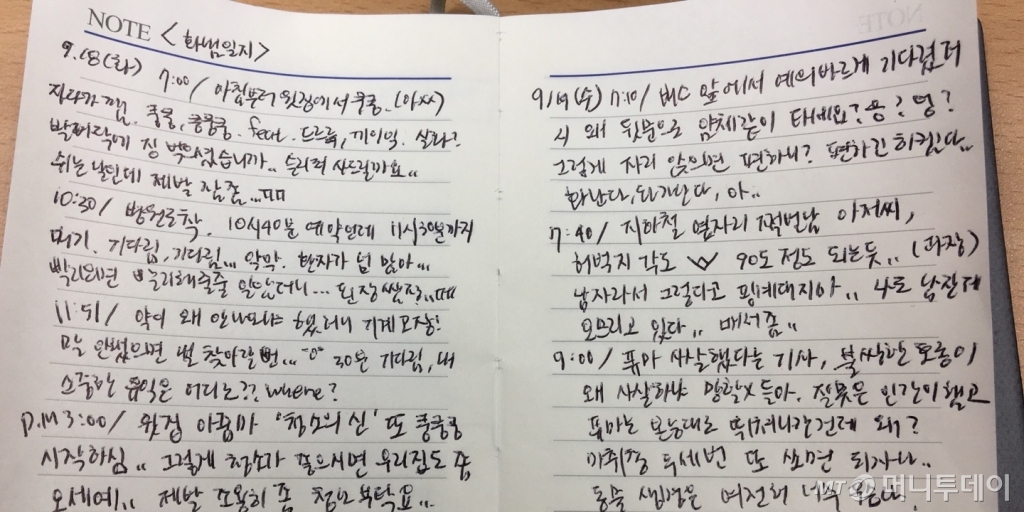 NOTE <화냄일지>
9.18(화) 7:00/ 아침부터 윗집에서 쿵쿵. (아xx)
자다가 깸. 쿵쿵, 쿵쿵쿵. feat. 드르륵, 끼이익. 살려?
발바닥에 징 박으셨습니까.. 슬리퍼 사드릴까요..
쉬는 날인데 제발 잠좀...ㅠㅠ
10:30/ 병원도착. 10시40분 예약인데 11시30분까지
대기. 기다림, 기다림... 악악. 환자가 넘 많아...
빨리오면 빨리해줄줄 알았더니... 된장쌈장..ㅠㅠ
11:51/ 약이 왜 안나오나 했더니 기계고장!
말 안했으면 널 찾아갈 뻔... "0" 30분 기다림, 내
소중한 휴식은 어디로?? where?
P.M 3:00/ 윗집 아줌마 '청소의 신' 또 쿵쿵쿵
시작하심.. 그렇게 청소가 좋으시면 우리집도 좀
오세예.. 제발 조용히 좀 청소 부탁요..
NOTE
9/19(수) 7:10/ 버스 앞에서 예의바르게 기다렸더
니 왜 뒷문으로 얌체같이 타세요? 응? 엉?
그렇게 자리 앉으면 편하니? 편하긴 하겠다..
화난다, 화가난다, 아..
7:40/ 지하철 옆자리 쩍벌남 아저씨,
허벅지 각도 90도 정도 되는듯.. (과장)
남자라서 그렇다고 핑계대지마.. 나도 남잔데
오므리고 있다.. 매너좀..
9:00/ 퓨마 사살했다는 기사, 불쌍한 호롱이
왜 사살하냐 망할x들아. 잘못은 인간이 했고
퓨마는 본능대로 뛰쳐나간건데 왜?
마취총 두세번 또 쏘면 되자나..
동물 생명은 여전히
MT 머니투데이